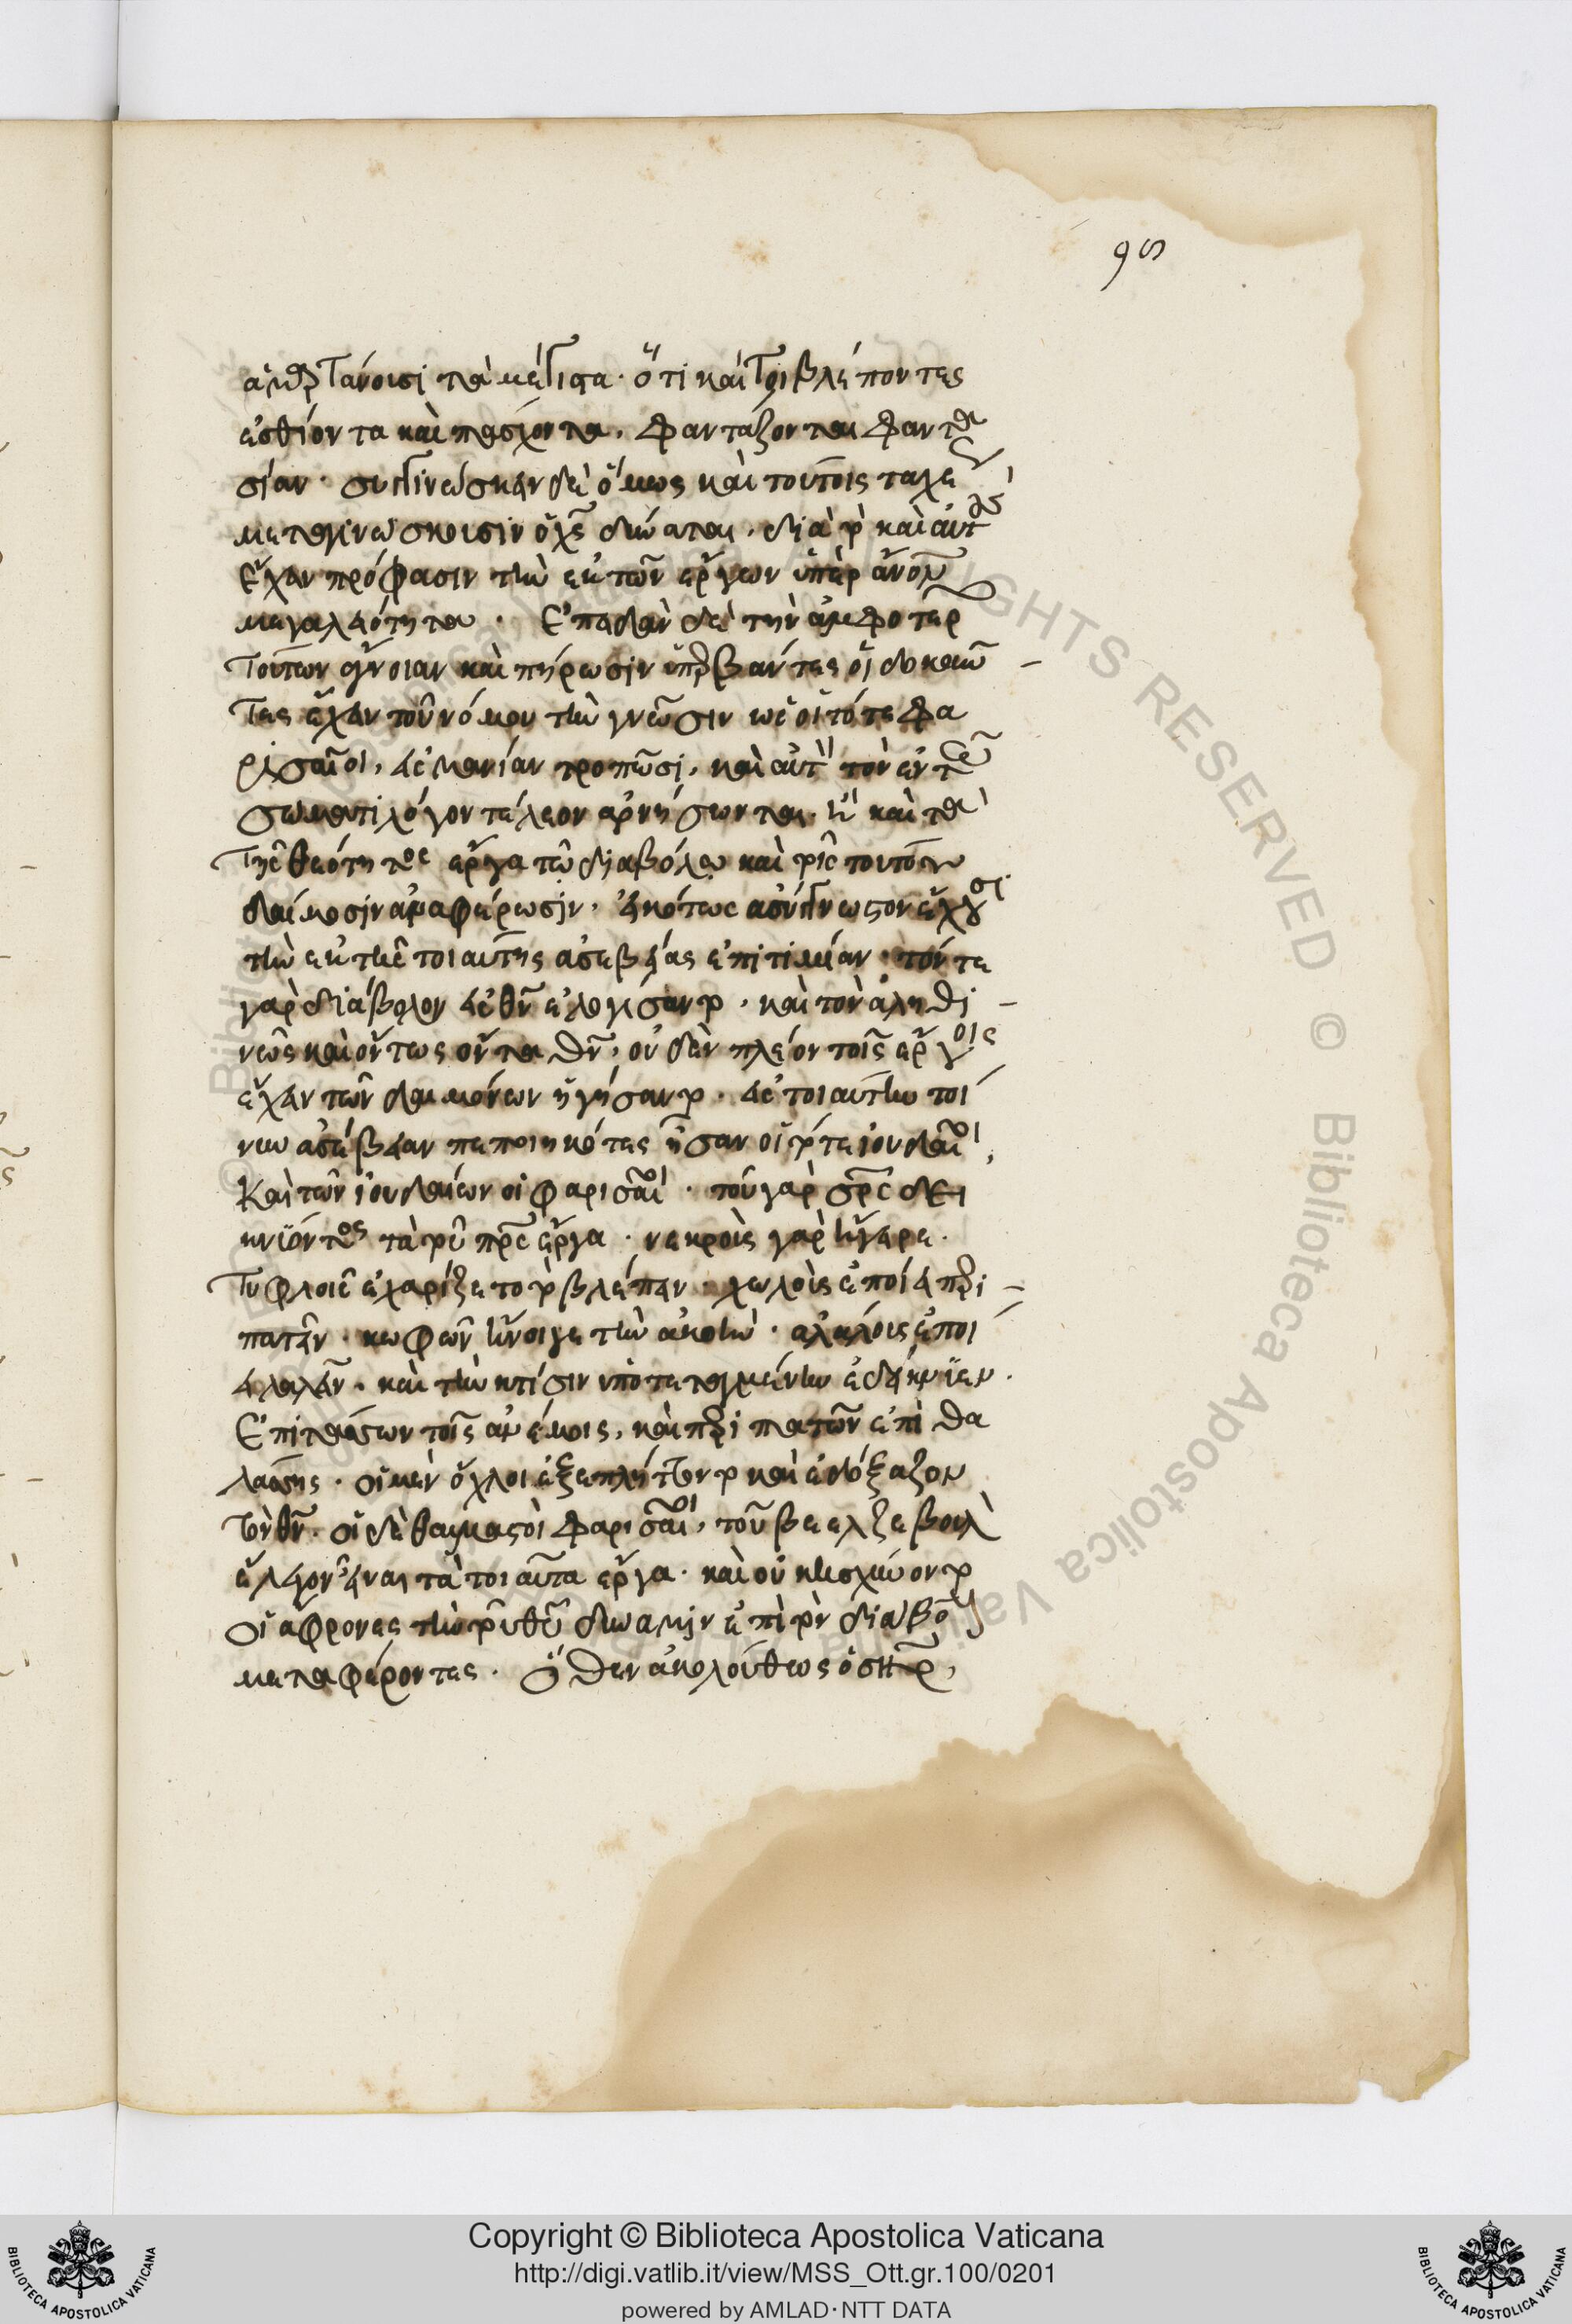 ϙϛ
ἁμαρτάνουσι τὰ μέγιστα · ὅτι καί τοι βλέποντες
ἐσθίοντα καὶ πάσχοντα, φαντάζονται φαντα
σίαν · συγγινώσκειν δὲ ὅμως καὶ τούτοις ταχέως
μεταγινώσκουσιν ὁ χς δύναται, διὰ τὸ καὶ αὐτοὺς
ἔχειν πρόφασιν τὴν ἐκ τῶν ἔργων ὑπὲρ ἄνον
μεγαλειότητα · Ἐπειδὰν δὲ τὴν ἀμφοτέρων
τούτων ἄγνοιαν καὶ πήρωσιν ὑπερβάντες οἱ δοκοῦν
τες ἔχειν τοῦ νόμου τὴν γνῶσιν ὡς οἱ τότε φα
ρισαῖοι, εἰς μανίαν τραπῶσι, καὶ αὐτὸν τὸν ἐν τῷ
σώματι λόγον τέλεον ἀρνήσωνται · ἢ καὶ τὰ
τῆς θεότητος ἔργα τῷ διαβόλῳ καὶ τοῖς τούτου
δαίμοσιν ἀναφέρωσιν, εἰκότως ἀσύγγνωστον ἔχουσι
τὴν ἐκ τῆς τοιαύτης ἀσεβείας ἐπιτιμίαν · τόν τε
γὰρ διάβολον εἰς θν ἐλογίσαντο, καὶ τὸν ἀληθι
νῶς καὶ ὄντως ὄντα θν, οὐδὲν πλέον τοῖς ἔργοις
ἔχειν τῶν δαιμόνων ἡγήσαντο. εἰς τοιαύτην τοί
νυν ἀσέβειαν πεποιηκότες ἦσαν οἱ τότε ἰουδαῖοι,
Καὶ τῶν ἰουδαίων οἱ φαρισαῖοι · τοῦ γὰρ σρς δει
κνύοντος τὰ τοῦ πρς ἔργα · νεκροὺς γὰρ ἤγειρε ·
Τυφλοῖς ἐχαρίζετο τὸ βλέπειν · χωλοὺς ἐποίει περι
πατεῖν · κωφῶν ἤνοιγε τὴν ἀκοὴν · ἀλάλους ἐποί
ει λαλεῖν · καὶ τὴν κτίσιν ὑποτεταγμένην ἐδείκνυεν ·
Ἐπιτάσσων τοῖς ἀνέμοις, καὶ περιπατῶν ἐπὶ θα
λάσσης · οἱ μὲν ὄχλοι ἐξεπλήττοντο καὶ ἐδόξαζον
τὸν θν · οἱ δὲ θαυμαστοὶ φαρισαῖοι, τοῦ βεελζεβοὺλ
ἔλεγον εἶναι τὰ τοιαῦτα ἔργα · καὶ οὐκ ᾐσχύνοντο
οἱ ἄφρονες τὴν τοῦ θυ δύναμιν ἐπὶ τὸν διάβολον
μεταφέροντες · Ὅθεν ἀκολούθως ὁ σηρ,